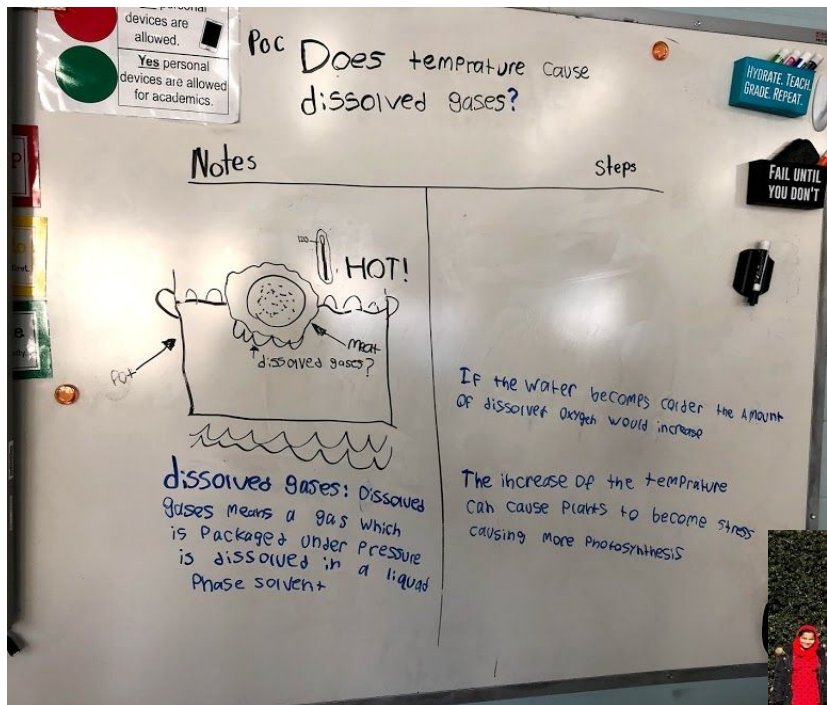 personal
devices are
allowed.
Yes personal
devices are allowed
for academics.
Poc
Does temprature cause
dissolved gases?
HYDRATE. TEACH.
GRADE. REPEAT.
FAIL UNTIL
YOU DON'T
Notes
Steps
120
HOT!
meat
dissolved gases?
Pot
dissolved gases: Dissolved
gases means a gas which
is Packaged under Pressure
is dissolved in a liquad
Phase solvent
If the water becomes colder the Amount
OF dissolver oxygen would increase
The increase OF the temprature
can cause Plants to become stress
causing more Photosynthesis